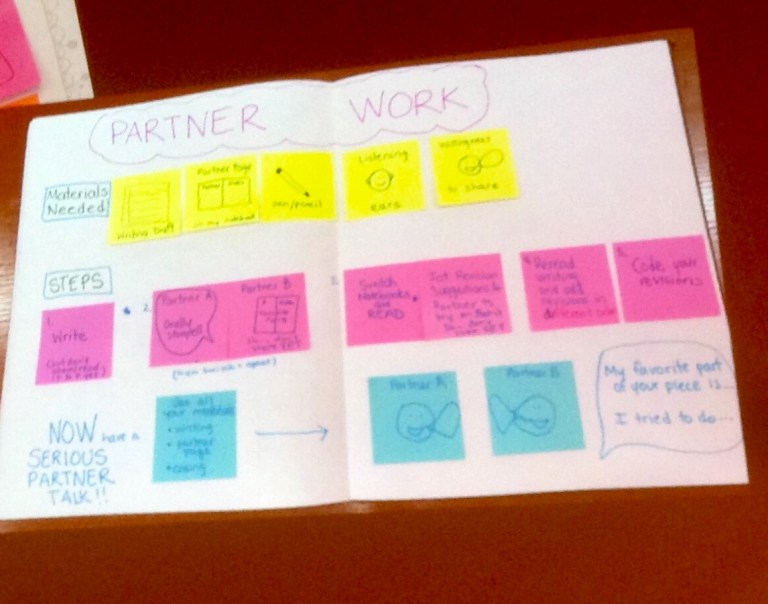 PARTNER WORK
Materials
Needed
Writing Draft
Partner Page
in my notebook
pen/pencil
Listening
ears
Willingness
to share
STEPS
1.
Write
2.
Partner A
Orally
Partner B
(then switch + repeat)
3.
Switch
Notebooks
and
READ
Jot Revision
Suggestions to
Partner to
try on
4. Reread
writing
and add
revisions in
different color
5.
Code your
revisions
NOW have a
SERIOUS
PARTNER
TALK!!
Use all
your materials
• writing
• partner
page
• coding
Partner A
Partner B
My favorite part
of your piece is...
I tried to do...